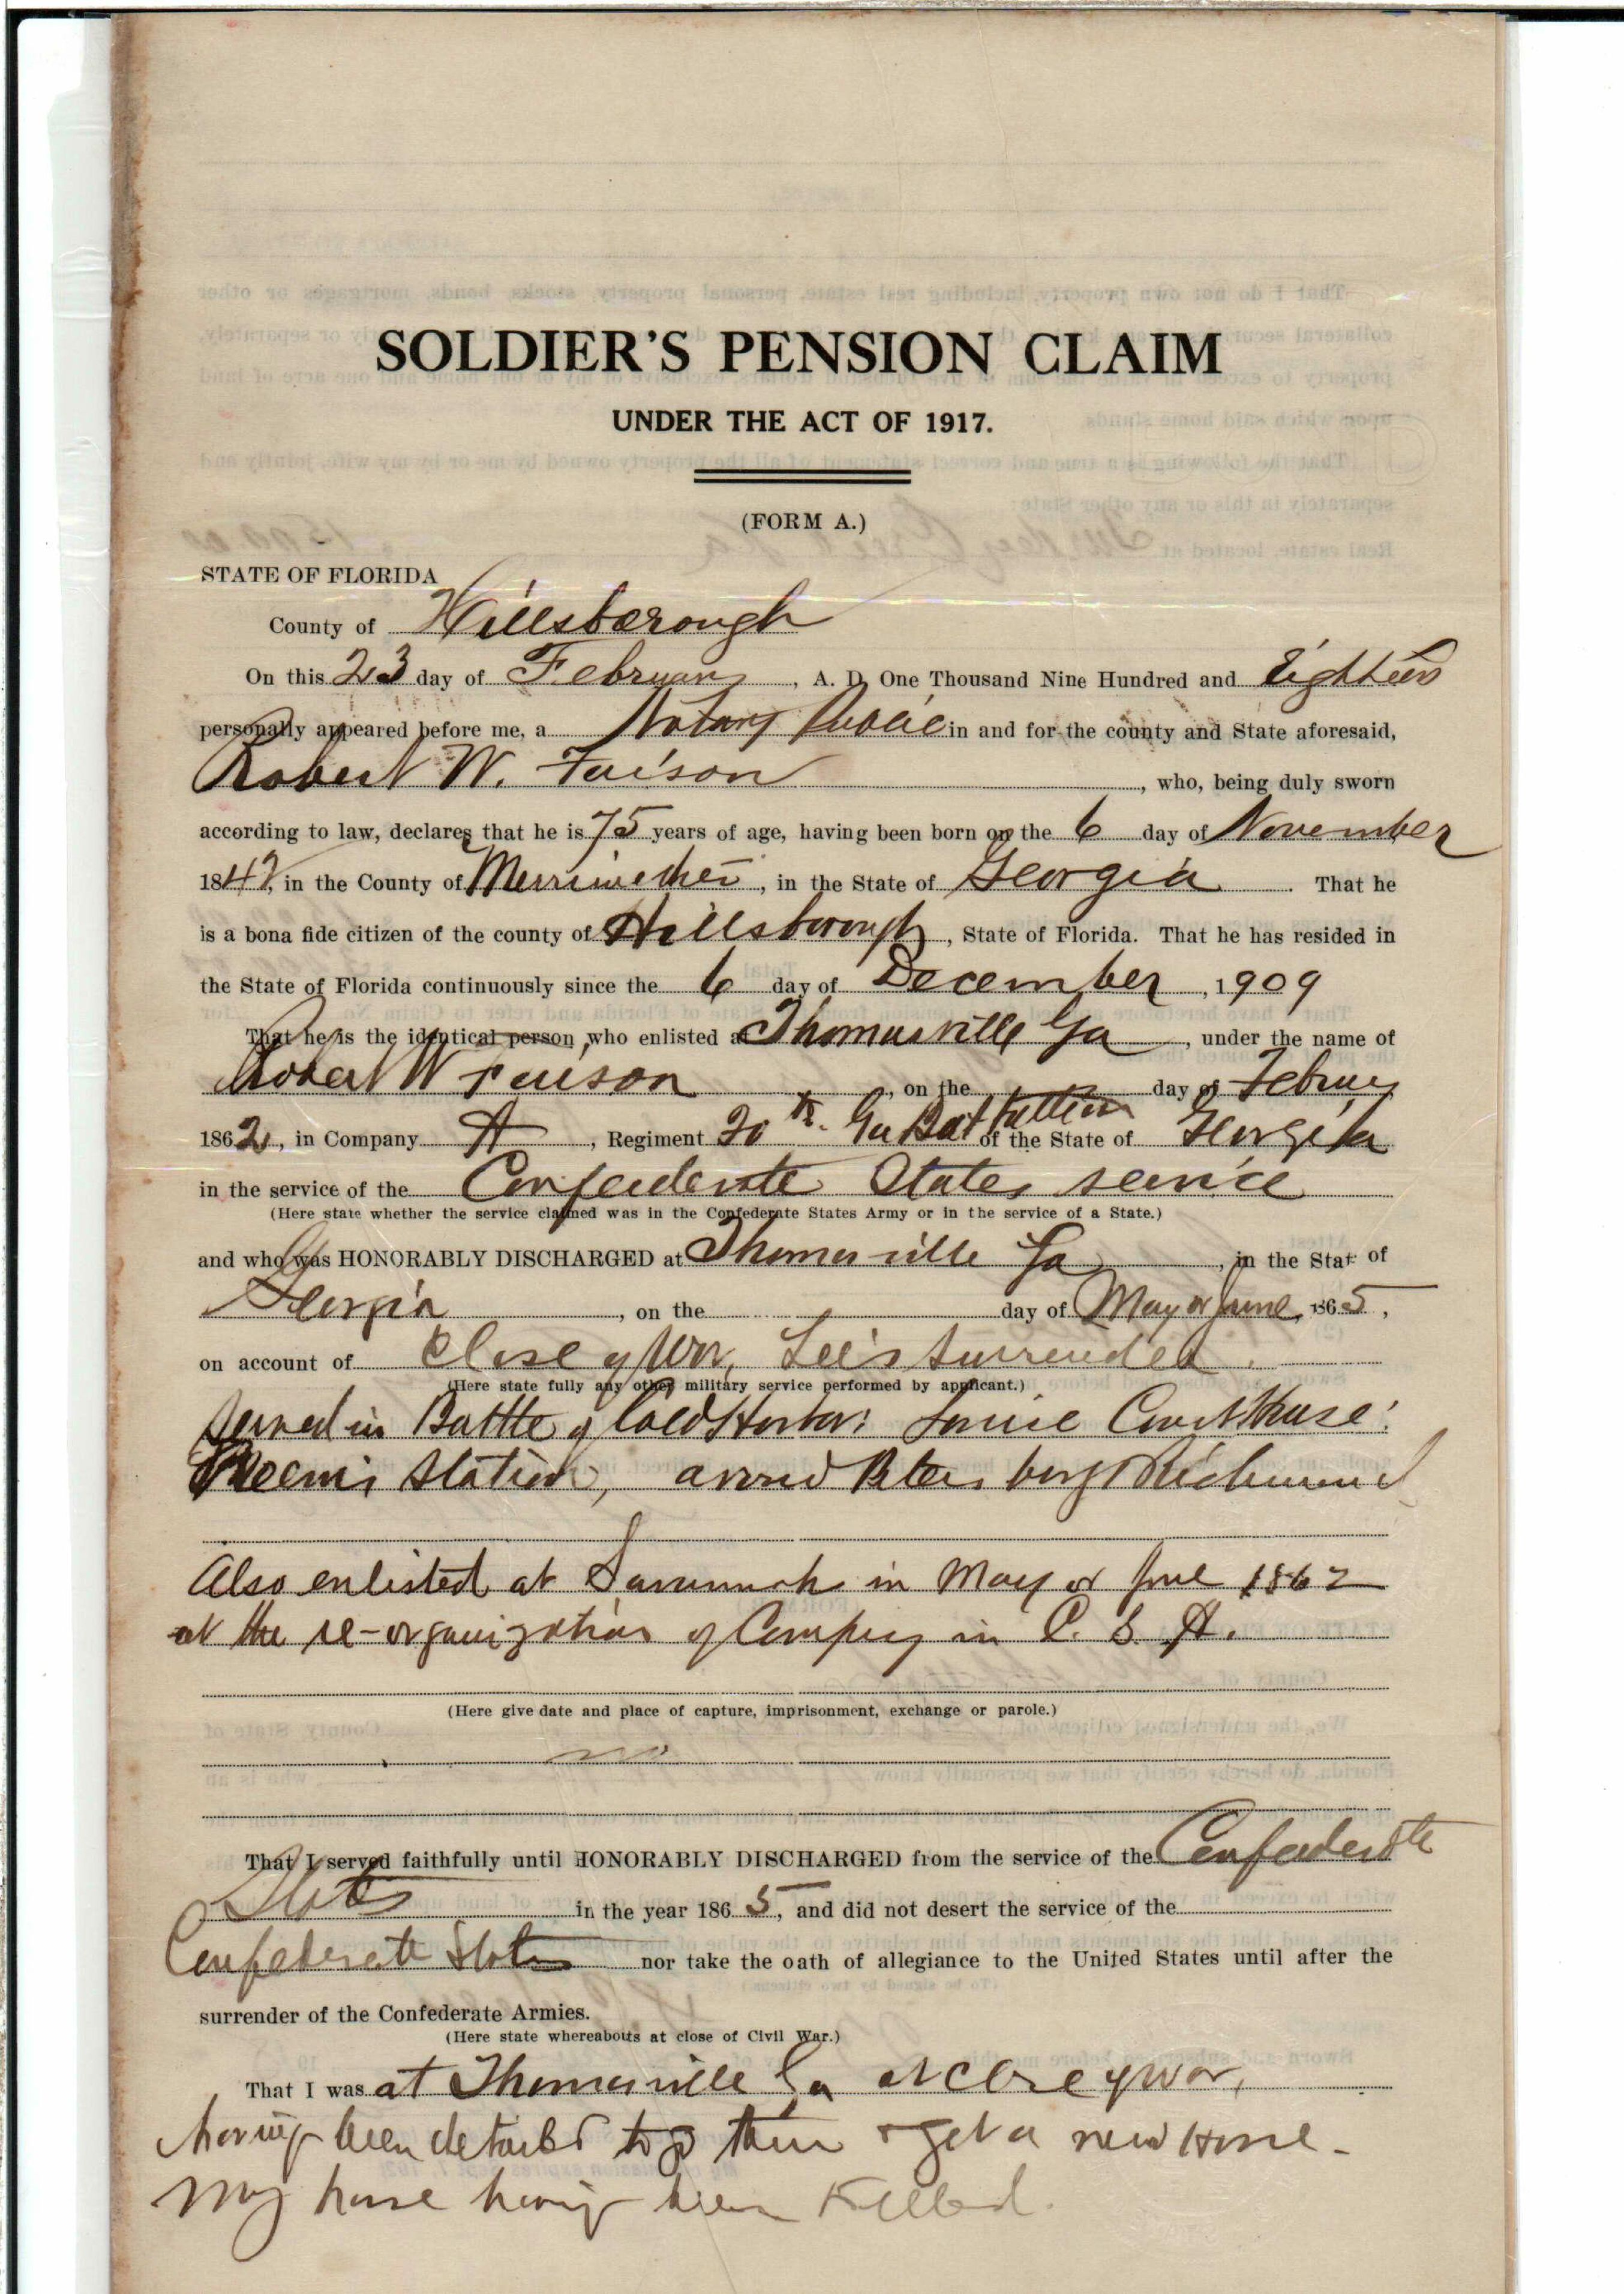 SOLDIER'S PENSION CLAIM
UNDER THE ACT OF 1917.
(FORM A.)
STATE OF FLORIDA
County of Hillsborough
On this 23 day of February, A. D. One Thousand Nine Hundred and Eighteen
personally appeared before me, a Notary Public in and for the county and State aforesaid,
Robert W. Faison, who, being duly sworn
according to law, declares that he is 75 years of age, having been born on the 6 day of November
1842, in the County of Merriwether, in the State of Georgia. That he
is a bona fide citizen of the county of Hillsborough, State of Florida. That he has resided in
the State of Florida continuously since the 6 day of December, 1909
That he is the identical person who enlisted at Thomasville Ga, under the name of
Robert W Faison, on the day of Februy
1862, in Company A, Regiment 20th. Ga Battalion of the State of Georgia
in the service of the Confederate States service
(Here state whether the service claimed was in the Confederate States Army or in the service of a State.)
and who was HONORABLY DISCHARGED at Thomasville Ga, in the State of
Georgia, on the day of May or June, 1865,
on account of Close of War, Lee's Surrender.
(Here state fully any other military service performed by applicant.)
Served in Battle of Cold Harbor; Court House;
Station, around Petersburg & Richmond
Also enlisted at Savannah in May or June 1862
at the re-organization of Company in C. S. A.
(Here give date and place of capture, imprisonment, exchange or parole.)
no
That I served faithfully until HONORABLY DISCHARGED from the service of the Confederate
States in the year 1865, and did not desert the service of the
Confederate States nor take the oath of allegiance to the United States until after the
surrender of the Confederate Armies.
(Here state whereabouts at close of Civil War.)
That I was at Thomasville Ga at close of war,
having been detailed to go there & get a new horse-
My horse having been killed.